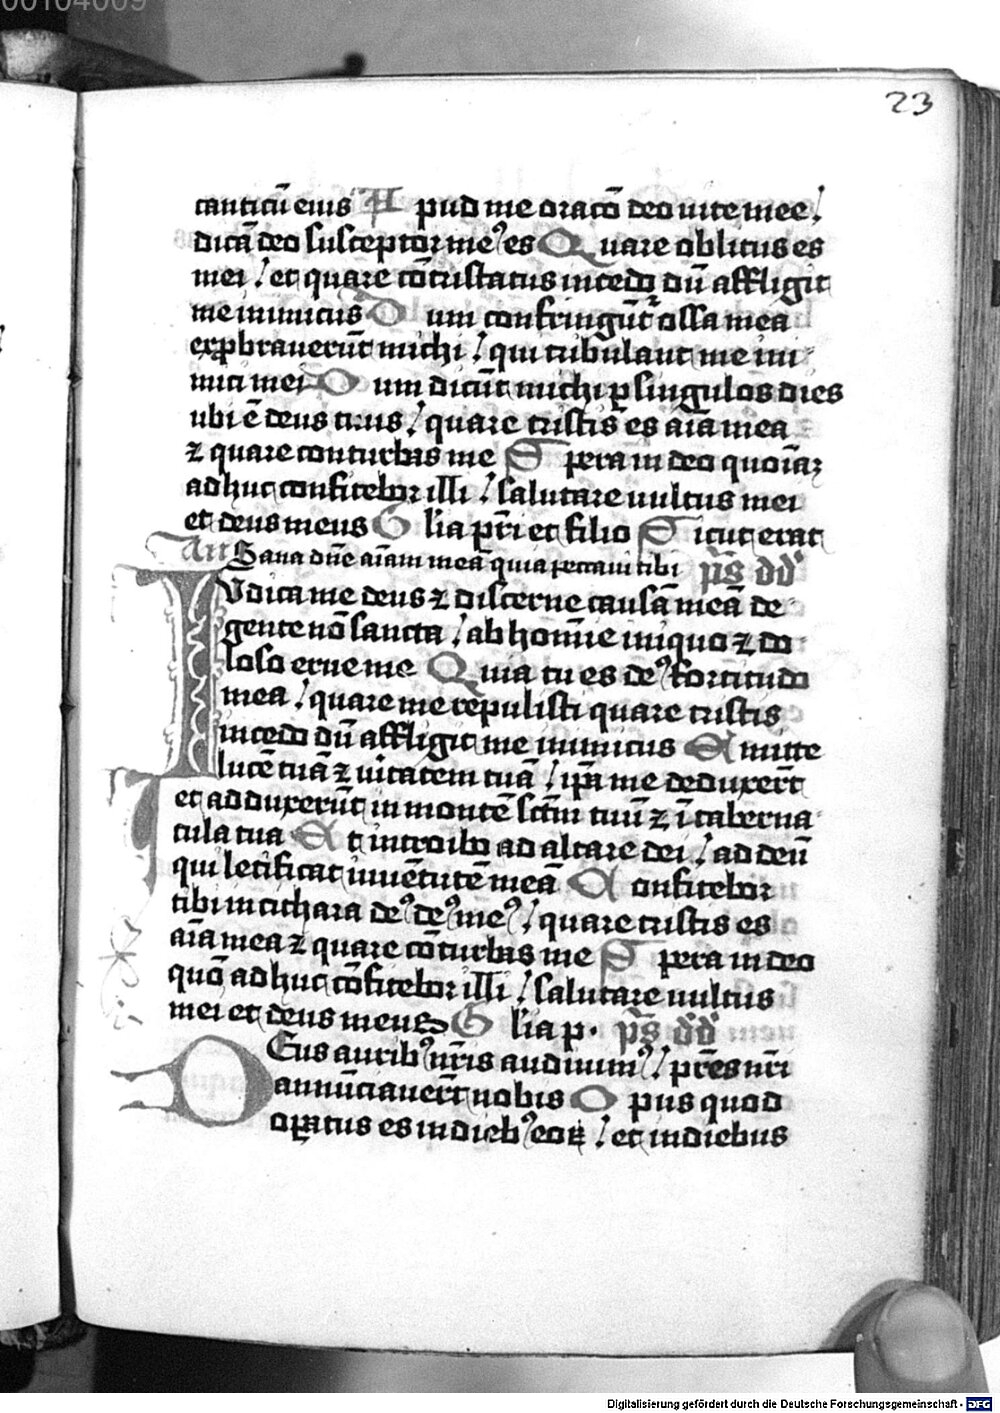 00104009
23
canticū eius Apud me oracō deo uite mee /
dicā deo susceptor me⁹ es Quare oblitus es
mei / et quare cōtristatus incedo dū affligit
me inimicus Dum confringūt ossa mea
exprobrauerūt michi / qui tribulant me ini
mici mei Dum dicūt michi ꝑ singulos dies
ubi ē deus tuus / quare tristis es aīa mea
⁊ quare conturbas me Spera in deo quoniaꝫ
adhuc confitebor illi / salutare uultus mei
et deus meus Glīa pr̄i et filio Sicut erat
Ant Sana dn̄e aīam meā quia peccaui tibi p̄s dd
IVdica me deus ⁊ discerne causā meā de
gente nō sancta / ab homīe iniquo ⁊ do
loso erue me Quia tu es de⁹ fortitudo
mea / quare me repulisti quare tristis
incedo dū affligit me inimicus Emitte
lucē tuā ⁊ ūitatem tuā / ip̄a me deduxer̄t
et adduxerūt in montē sc̄m tuū ⁊ ī taberna
cula tua Et introibo ad altare dei / ad deū
qui letificat iuuētutē meā Confitebor
tibi in cithara de⁹ de⁹ me⁹ / quare tristis es
aīa mea ⁊ quare cōturbas me Spera in deo
quō adhuc cōfitebor illi / salutare uultus
mei et deus meus Glīa p. p̄s dd
DEus aurib⁹ nr̄is audiuim⁹ / pr̄es nr̄i
annūciauer̄t nobis Opus quod
oꝑatus es in dieb⁹ eoꝝ / et in diebus
Digitalisierung gefördert durch die Deutsche Forschungsgemeinschaft - DFG